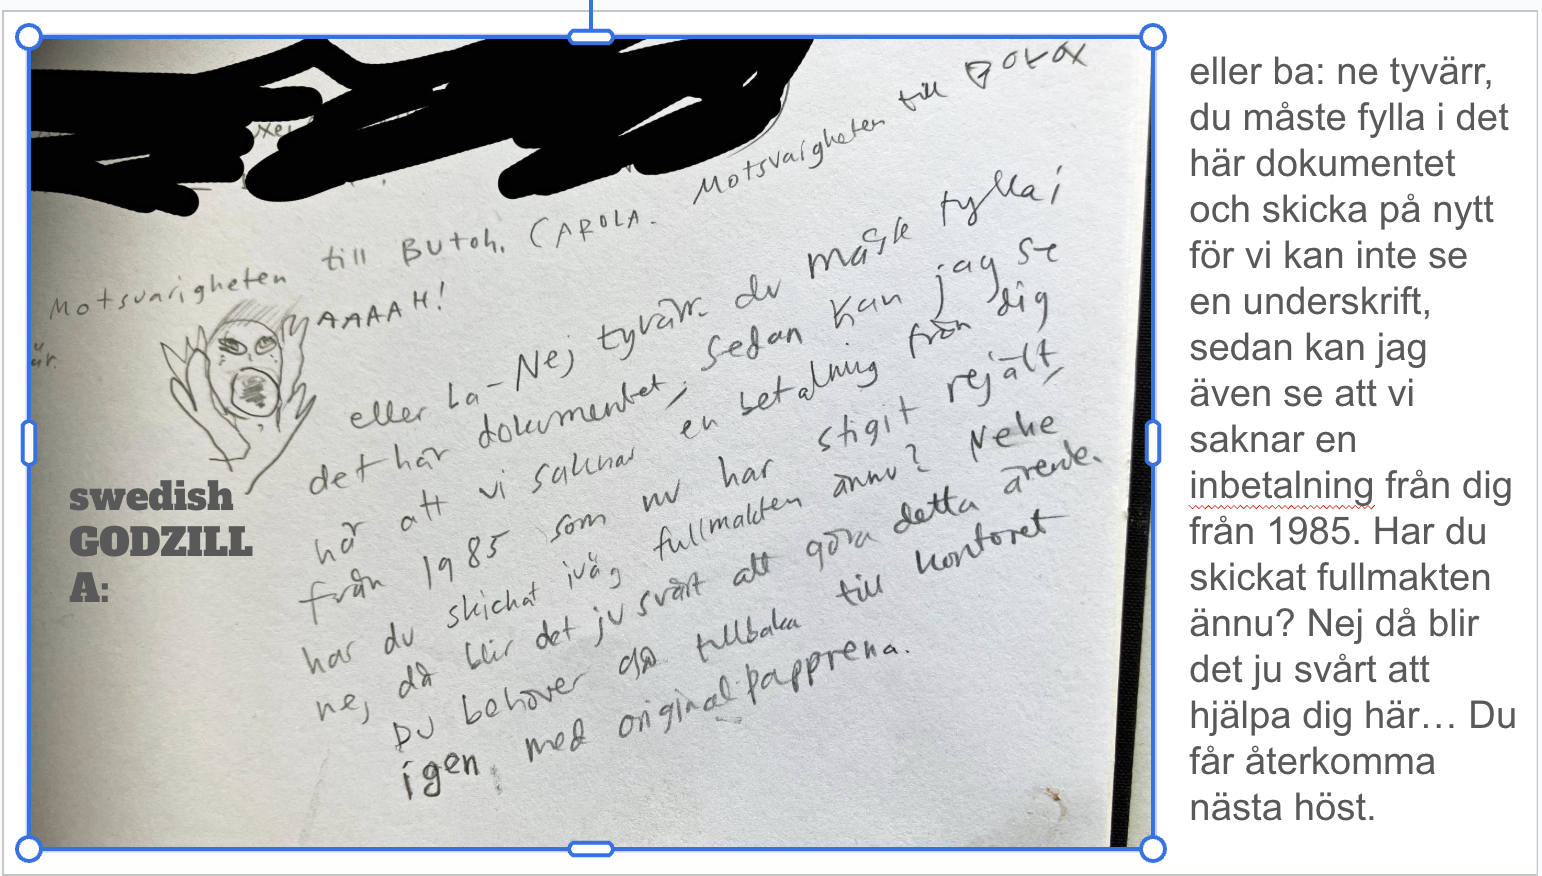 Motsvarigheten till BUtoh. CAROLA. Motsvarigheten till
AAAAH!
eller ba - Nej tyvärr du måste fylla i
det här dokumentet, sedan kan jag se
här att vi saknar en betalning från dig
från 1985 som nu har stigit rejält,
har du skickat iväg fullmakten ännu? Nehe
nej då blir det ju svårt att göra detta ärende.
DU behöver gå tillbaka till kontoret
igen med originalpapprena.
är.
swedish
GODZILL
A:
eller ba: ne tyvärr,
du måste fylla i det
här dokumentet
och skicka på nytt
för vi kan inte se
en underskrift,
sedan kan jag
även se att vi
saknar en
inbetalning från dig
från 1985. Har du
skickat fullmakten
ännu? Nej då blir
det ju svårt att
hjälpa dig här… Du
får återkomma
nästa höst.